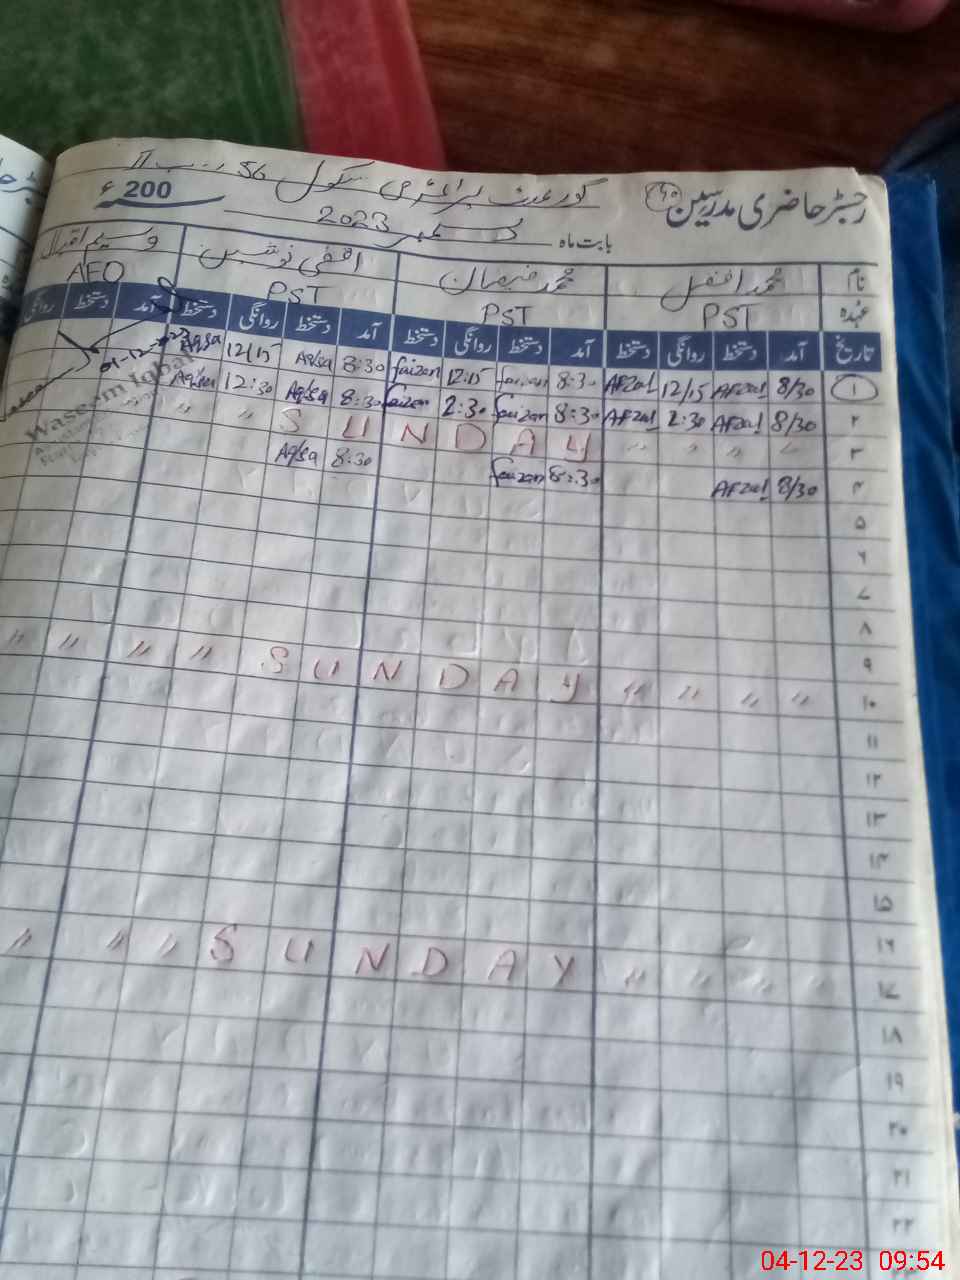 رجسٹر حاضری مدرسین گورنمنٹ پرائمری سکول 56 ر۔ب II
بابت ماہ دسمبر 2023 200ء
نام محمد افضل محمد فیضان اقصٰی نوشین وسیم اقبال
عہدہ PST PST PST AEO
تاریخ آمد دستخط روانگی دستخط آمد دستخط روانگی دستخط آمد دستخط روانگی دستخط آمد دستخط روانگی
۱ 8/30 AFzal 12/15 AFzal 8:30 faizan 12:15 faizan 8:30 Aqsa 12/15 Aqsa 01-12-2023
۲ 8/30 AFzal 2:30 AFzal 8:30 faizan 2:30 faizan 8:30 Aqsa 12:30 Aqsa
Waseem Iqbal
۳ " " " " S U N D A Y " "
۴ 8/30 AFzal 8:30 faizan 8:30 Aqsa
۵
۶
۷
۸
۹
۱۰ " " " " S U N D A Y " " " "
۱۱
۱۲
۱۳
۱۴
۱۵
۱۶
۱۷ " " " " S U N D A Y " " "
۱۸
۱۹
۲۰
۲۱
۲۲
04-12-23 09:54